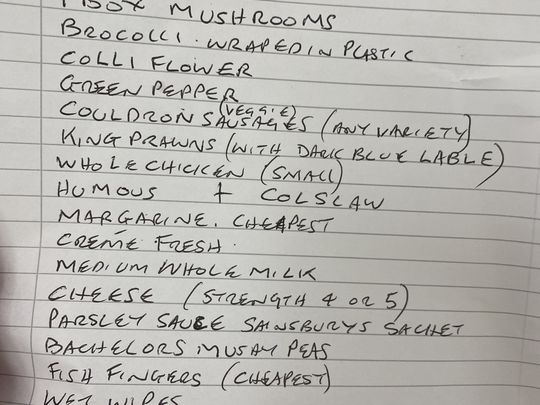 1 BOX MUSHROOMS
BROCOLLI. WRAPED IN PLASTIC
COLLI FLOWER
GREEN PEPPER
(VEGGIE)
COULDRON SAUSAGES (ANY VARIETY)
KING PRAWNS (WITH DARK BLUE LABLE)
WHOLE CHICKEN (SMALL)
HUMOUS + COLSLAW
MARGARINE. CHEAPEST
CREME FRESH.
MEDIUM WHOLE MILK
CHEESE (STRENGTH 4 OR 5)
PARSLEY SAUCE SAINSBURYS SACHET
BACHELORS MUSHY PEAS
FISH FINGERS (CHEAPEST)
WET WIPES